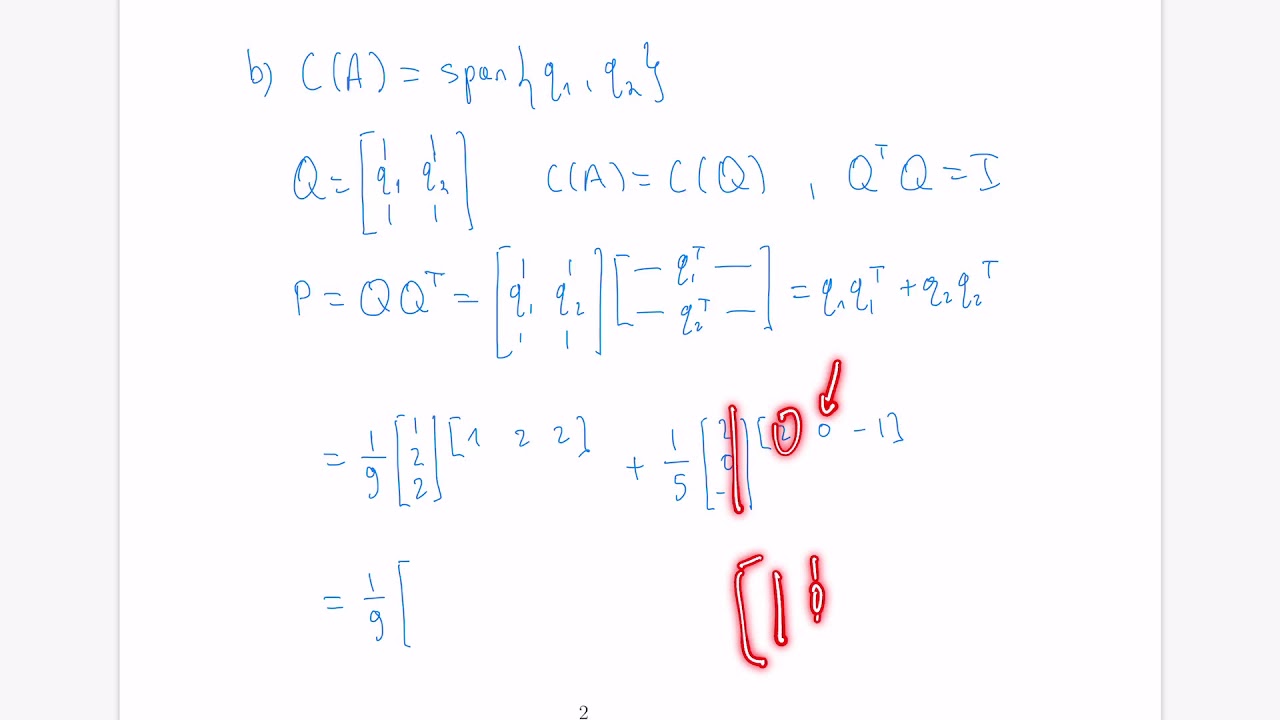 b) C(A) = span{q₁, q₂}
Q = [q₁ q₂]   C(A) = C(Q) , QᵀQ = I
P = QQᵀ = [q₁ q₂] [— q₁ᵀ — ; — q₂ᵀ —] = q₁q₁ᵀ + q₂q₂ᵀ
= 1/9 [1 ; 2 ; 2] [1 2 2] + 1/5 [2 ; 0 ; -] [2 0 -1]
= 1/9 [   [ | 0
2